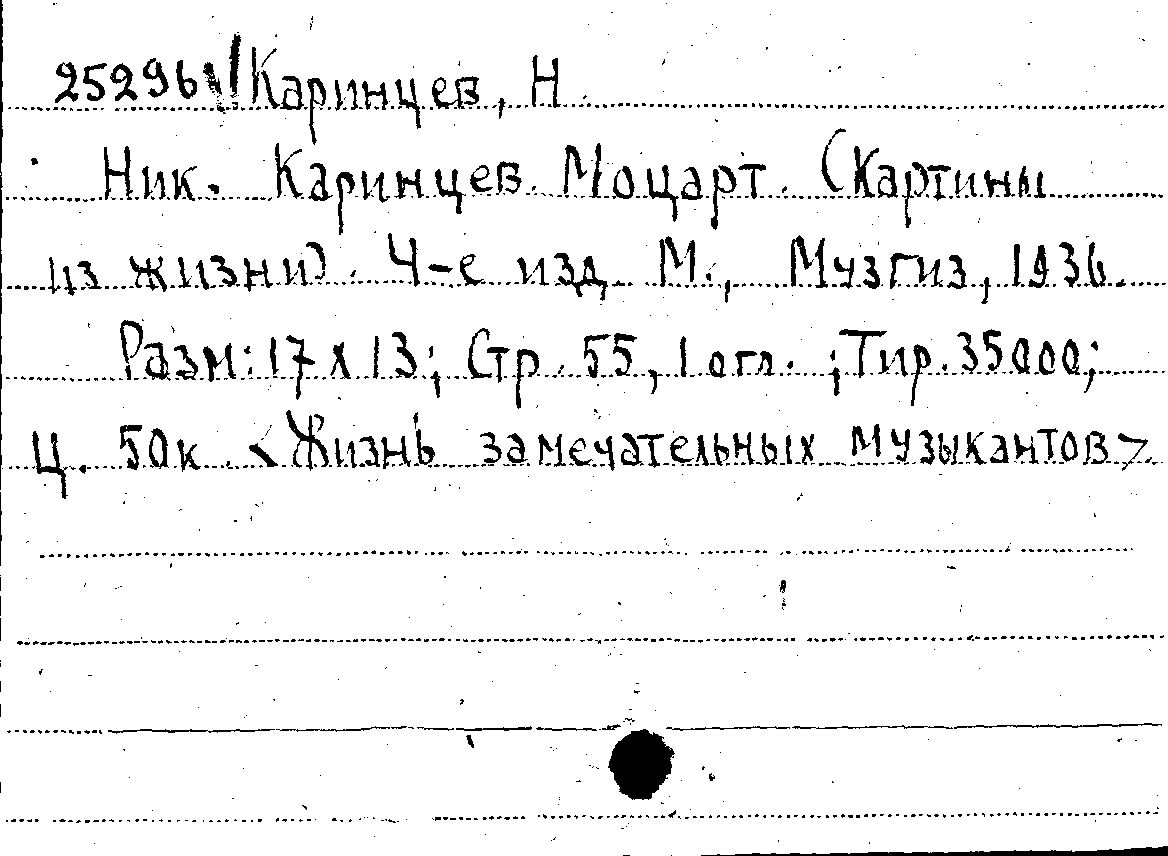 25296 Каринцев, Н.
Ник. Каринцев. Моцарт. (Картины
из жизни). 4-е изд. М., Музгиз, 1936.
Разм: 17 х 13; Стр. 55, 1 огл. ; Тир. 35000;
Ц. 50к. <Жизнь замечательных музыкантов>.